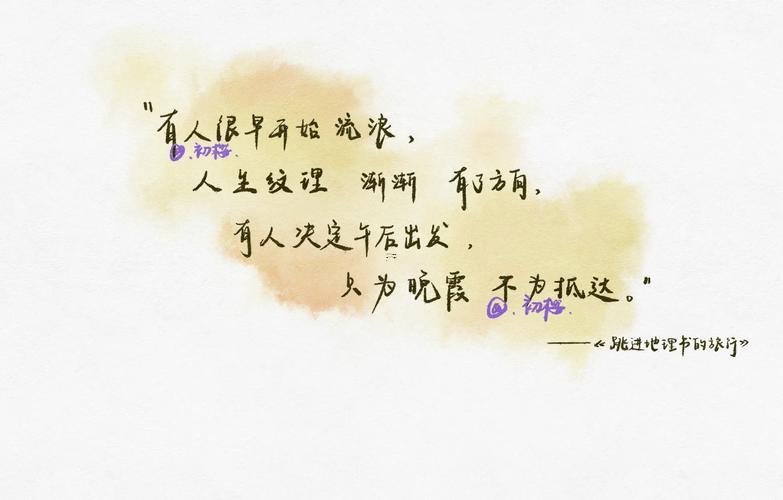 "有人很早开始 流浪，
@.初樱.
人生纹理 渐渐 有了方向，
有人决定午后出发，
只为晚霞 不为抵达。"
@.初樱.
——《跳进地理书的旅行》